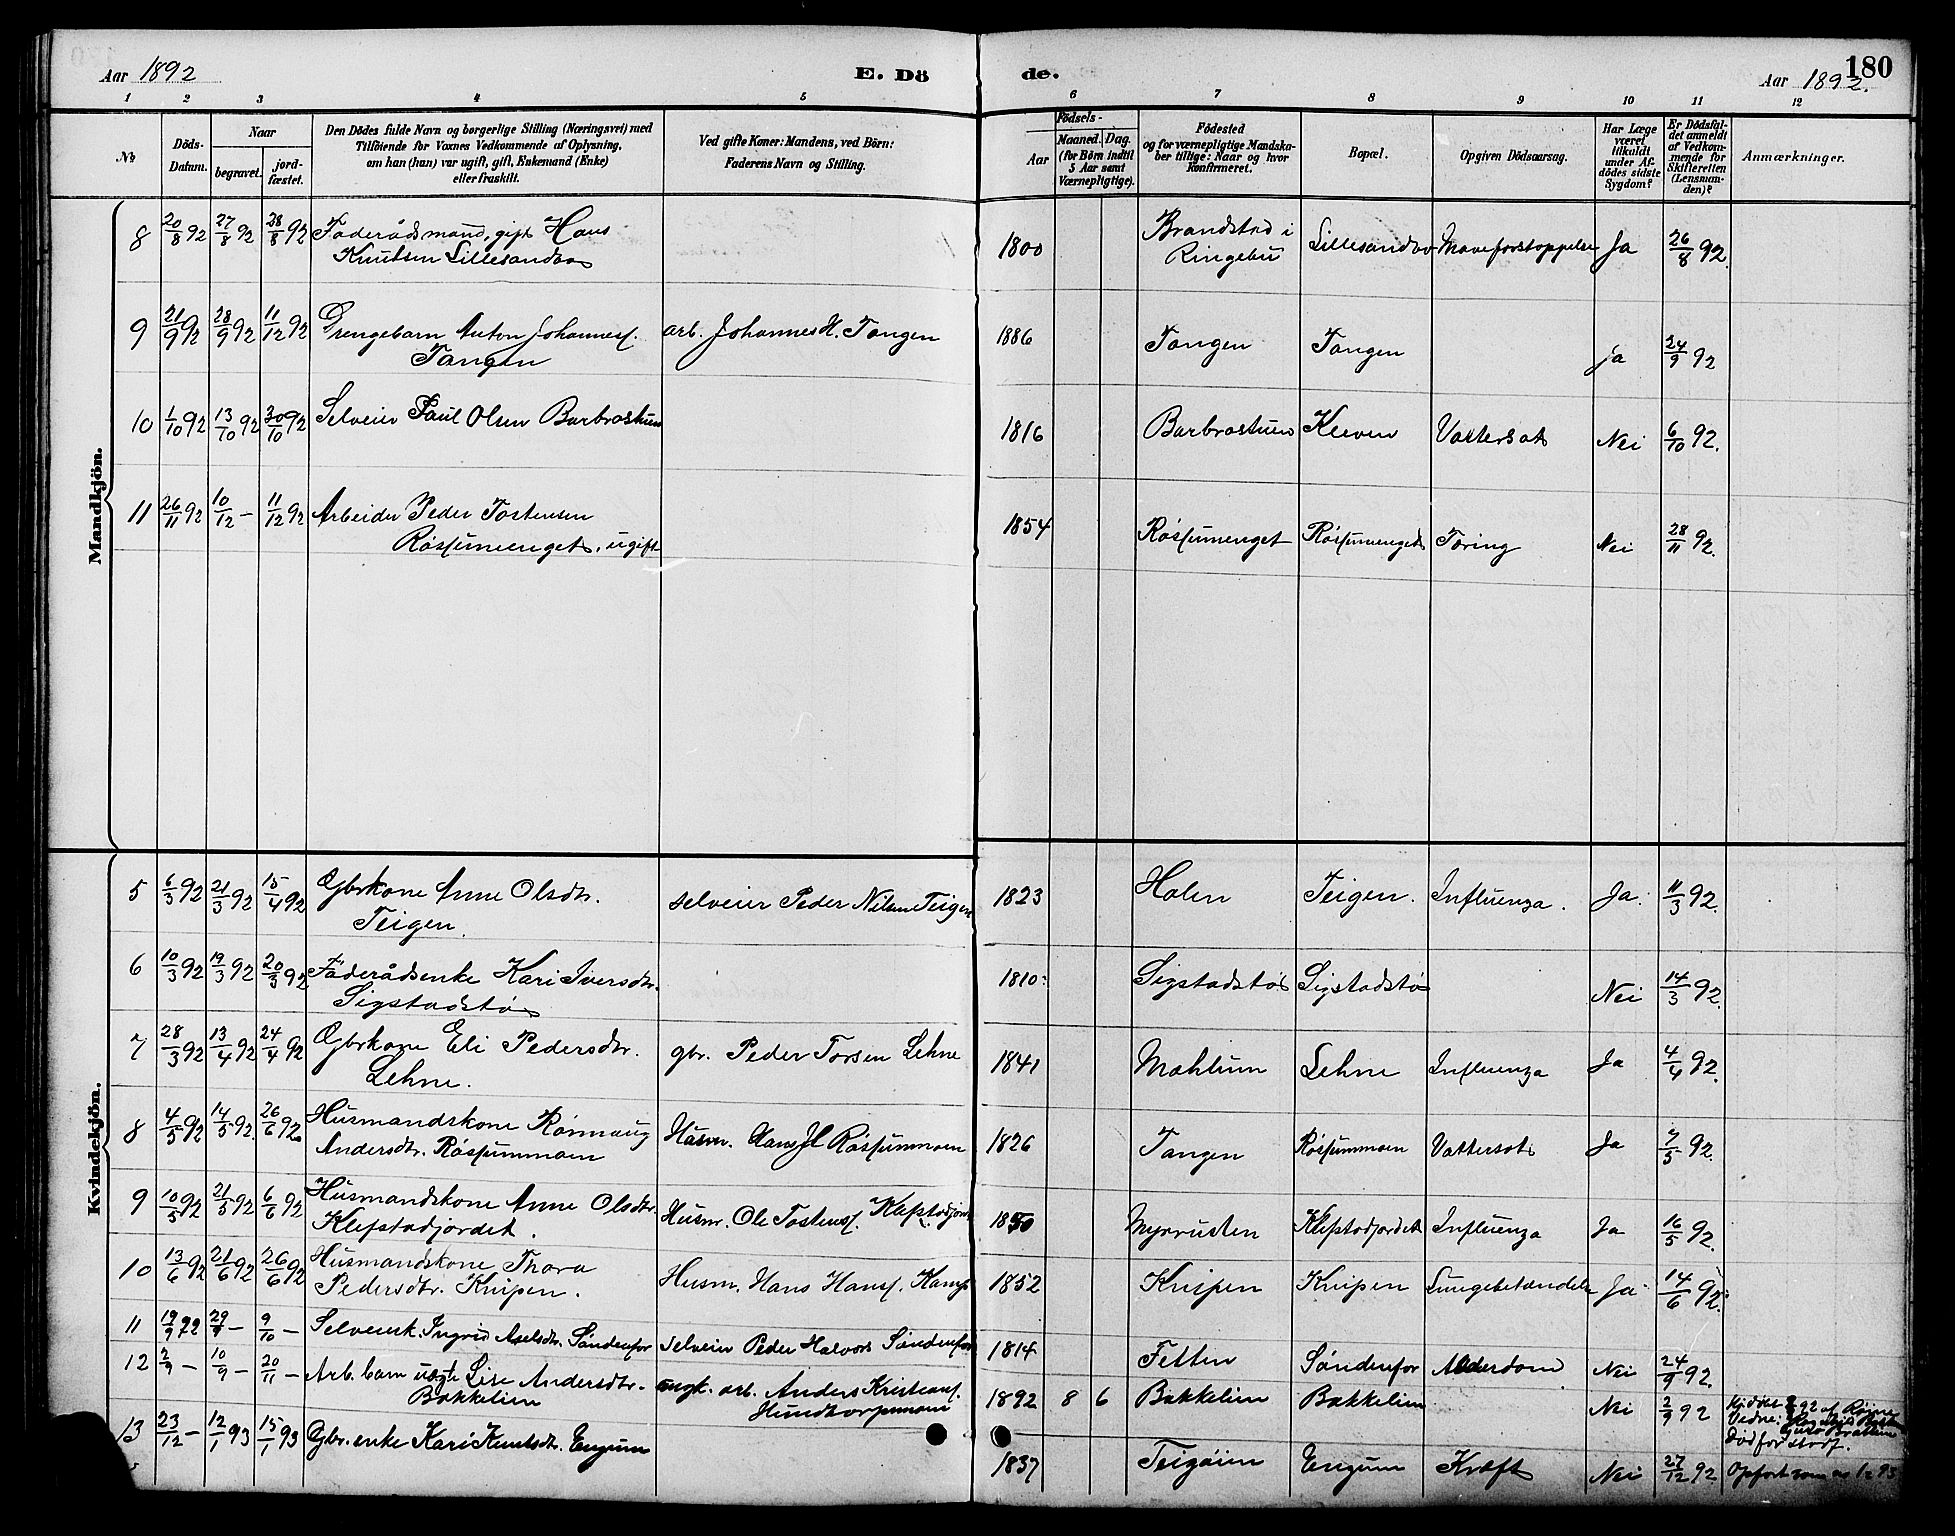 Aar 1892
E. Dö
de.
Aar 1892.
180
1 2 3 4 5 6 7 8 9 10 11 12
№
Döds-
Datum.
Naar
begravet.
jord-
fæstet.
Den Dödes fulde Navn og borgerlige Stilling (Næringsvei) med
Tilföiende for Voxnes Vedkommende af Oplysning,
om han (hun) var ugift, gift, Enkemand (Enke)
eller fraskilt.
Ved gifte Koner: Mandens, ved Börn:
Faderens Navn og Stilling.
Födsels-
Aar
Maaned. Dag.
(for Börn indtil
5 Aar samt
Værnepligtige).
Födested
og for værnepligtige Mandska-
ber tillige: Naar og hvor
Konfirmeret.
Bopæl.
Opgiven Dödsaarsag.
Har Læge
været
tilkaldt
under Af-
dödes sidste
Sygdom?
Er Dödsfal-
det anmeldt
af Vedkom-
mende for
Skifteretten
(Lensman-
den)?
Anmærkninger.
Mandkjön.
8 20/8 92 27/8 92 28/8 92 Föderådsmand, gift Hans
Knutsen Lillesandvo
1800 Brandstad i
Ringebu
Lillesandvo Maveforstoppelse Ja 26/8 92.
9 21/9 92 28/9 92 11/12 92 Drengebarn Anton Johanness.
Tangen
arb. Johannes H. Tangen 1886 Tangen Tangen ja 24/9 92
10 1/10 92 13/10 92 30/10 92 Selveier Paul Olsen Barbrostuen
1816 Barbrostuen Kleven Vattersot Nei 6/10 92.
11 26/11 92 10/12 – 11/12 92 Arbeider Peder Tostensen
Rössumenget, ugift
1854 Rössumenget Rössumenget Tæring Nei 28/11 92.
Kvindekjön.
5 6/3 92 21/3 92 15/4 92 Gbrkone Anne Olsdtr.
Teigen.
selveier Peder Nilsen Teigen 1823 Holen Teigen. Influenza. Ja. 11/3 92.
6 10/3 92 19/3 92 20/3 92 Föderådsenke Kari Iversdtr.
Sigstadstø
1810 Sigstadstø Sigstadstø Nei 14/3 92.
7 28/3 92 13/4 92 24/4 92 Gbrkone Eli Pedersdtr.
Lehne.
gbr. Peder Torsen Lehne 1841 Mæhlum Lehne Influenza Ja 4/4 92.
8 4/5 92 14/5 92. 26/6 92. Husmandskone Rönnaug
Andersdtr. Rössummoen
Husm. Hans Rössummoen 1826 Tangen Rössummoen Vattersot Ja 7/5 92.
9 10/5 92 21/5 92 6/6 92 Husmandskone Anne Olsdtr.
Klefstadjordet.
Husm. Ole Tostens. Klefstadjord 1850 Myrrusten Klefstadjordet Influenza Ja 16/5 92.
10 13/6 92 21/6 92 26/6 92 Husmandskone Thora
Pedersdtr. Knipen.
Husm. Hans Hans. 1852 Knipen Knipen Lungebetændelse Ja 14/6 92.
11 19/9 92 29/9 – 9/10 – Selveierk. Ingrid Axelsdtr. Söndenfor
selveier Peder Halvors Söndenfor 1814 Fetten Söndenfor Alderdom Nei 24/9 92.
12 2/9 – 10/9 – 20/11 – Arb. barn uægt Lise Andersdtr.
Bakkelien
ungk. arb. Anders Kristians.
Hundtorpmoen
1892 8 6 Bakkelien Bakkelien Nei 2/9 92
Död før
13 23/12 – 12/1 93 15/1 93 Gbr.enke Kari Knutsdtr. Engum
1837 Teigöien Engum Kræft Nei 27/12 92 Opfört som